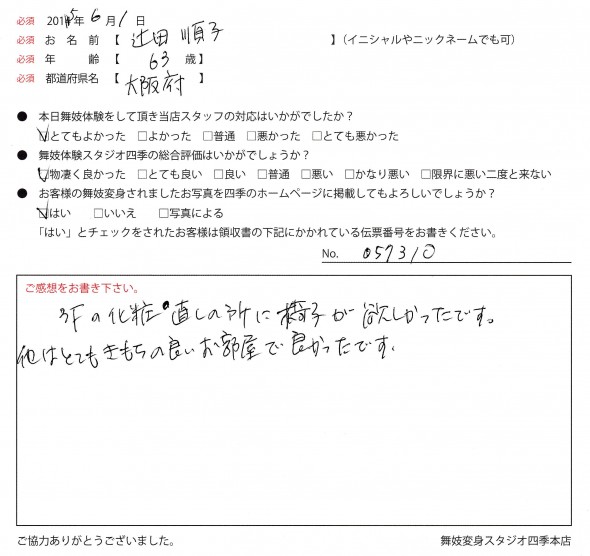 必須 2015年 6月 1日
必須 お名前【 辻田 順子 】(イニシャルやニックネームでも可)
必須 年 齢【 63 歳】
必須 都道府県名【 大阪府 】
● 本日舞妓体験をして頂き当店スタッフの対応はいかがでしたか？
☑とてもよかった □よかった □普通 □悪かった □とても悪かった
● 舞妓体験スタジオ四季の総合評価はいかがでしょうか？
☑物凄く良かった □とても良い □良い □普通 □悪い □かなり悪い □限界に悪い二度と来ない
● お客様の舞妓変身されましたお写真を四季のホームページに掲載してもよろしいでしょうか？
☑はい □いいえ □写真による
「はい」とチェックをされたお客様は領収書の下記にかかれている伝票番号をお書きください。
No. 057310
ご感想をお書き下さい。
3Fの化粧直しの所に椅子が欲しかったです。
他はとてもきもちの良いお部屋で良かったです.
ご協力ありがとうございました。
舞妓変身スタジオ四季本店